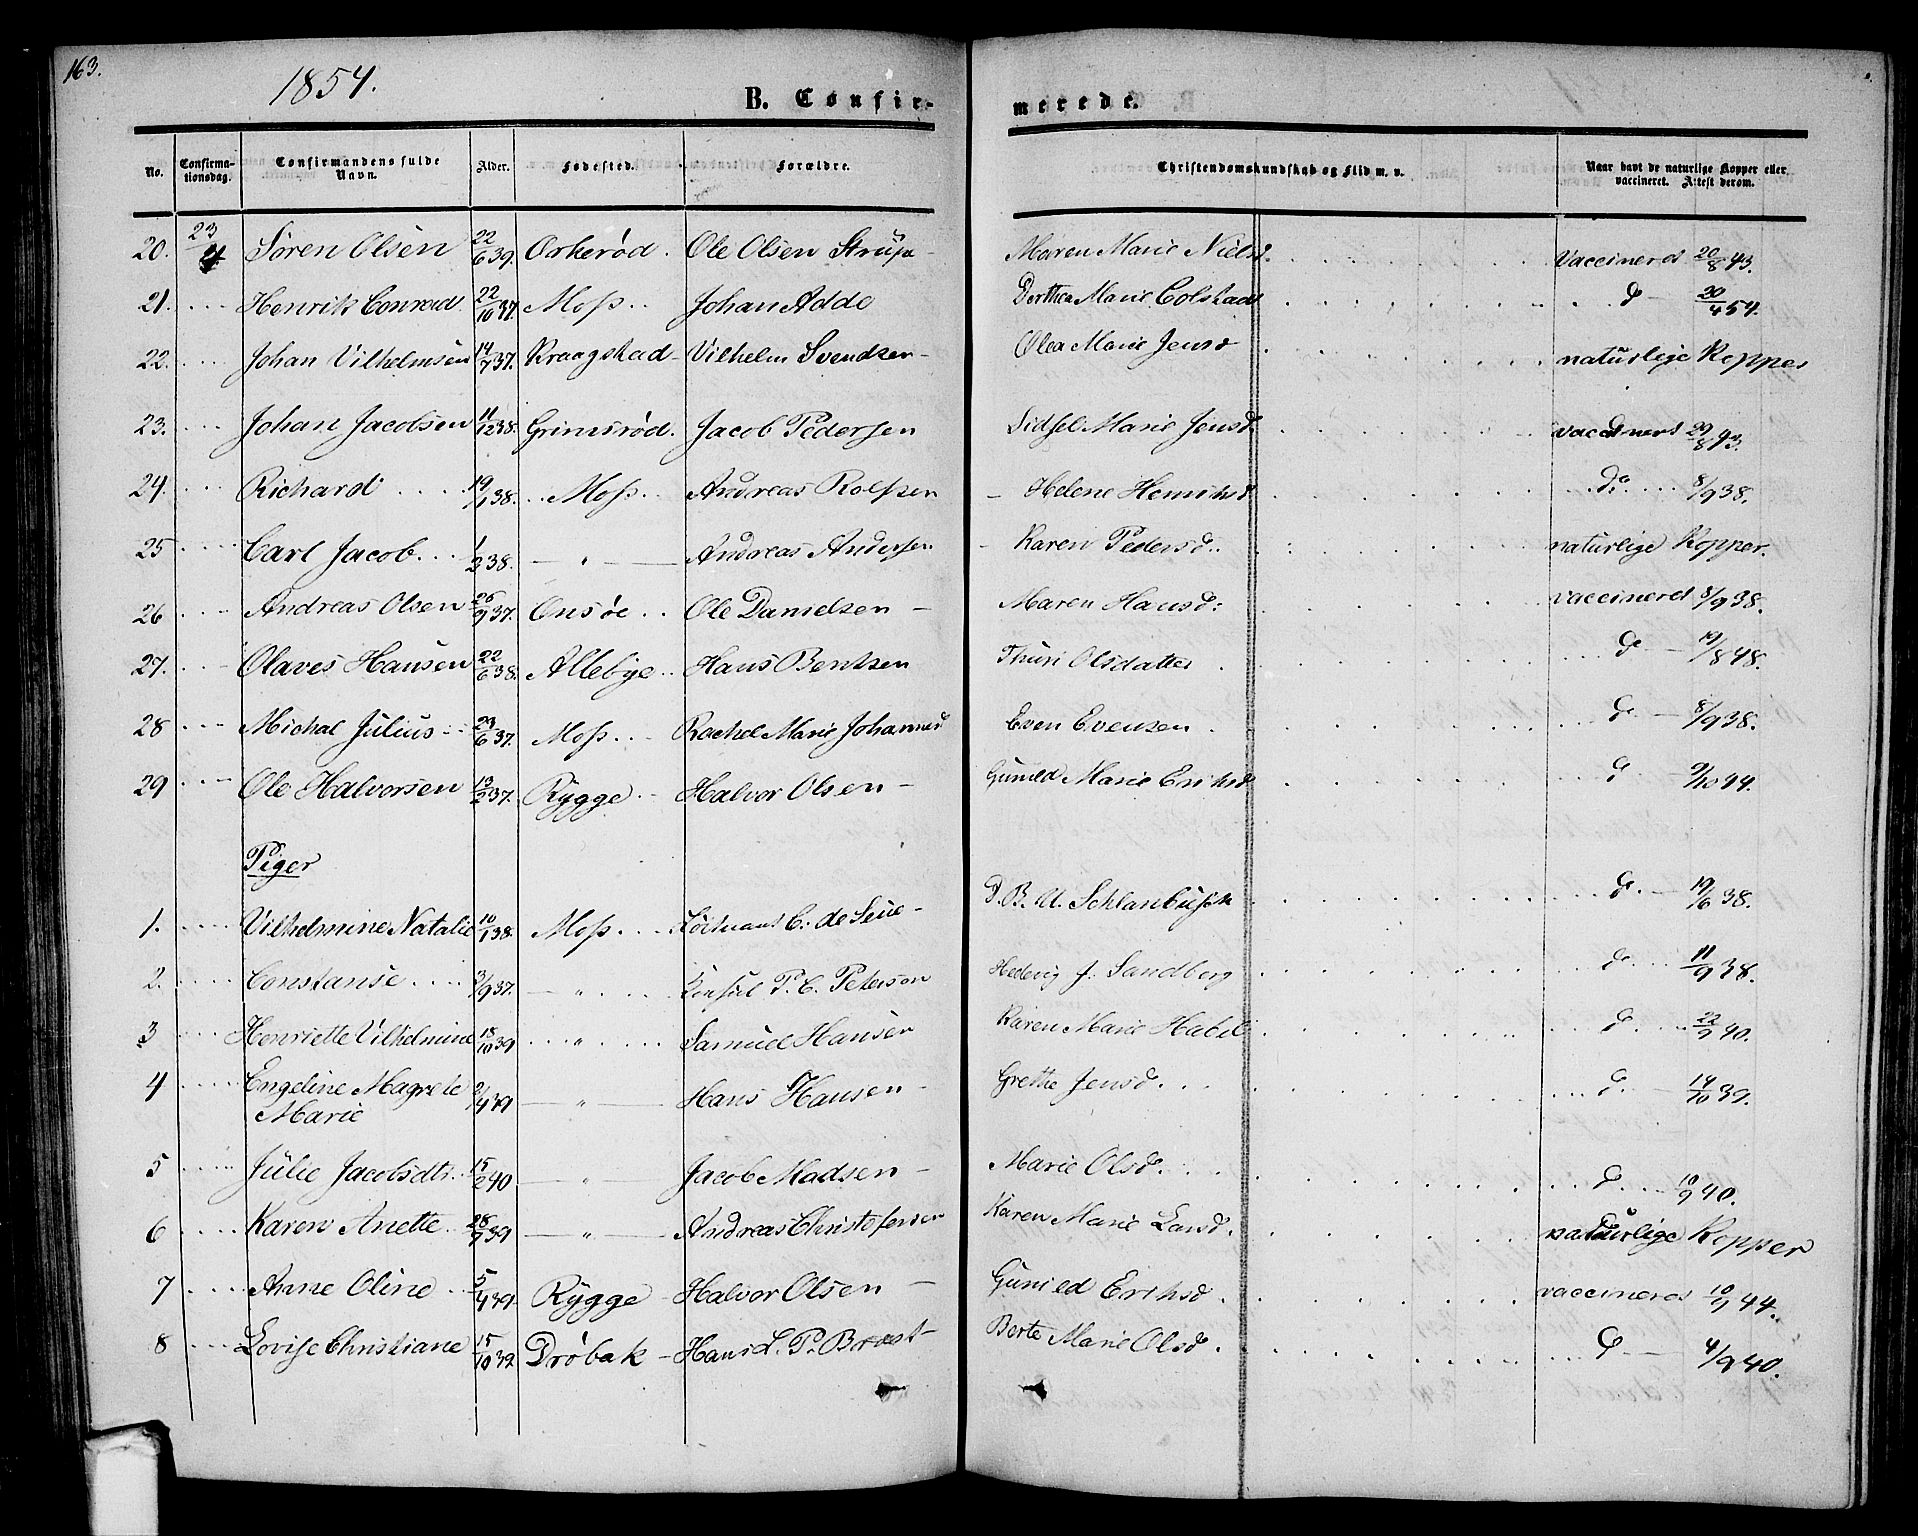 163.
1854.
B. Confir-
merede.
No. Confirma-tionsdag. Confirmandens fulde Navn. Alder. Fødested. Forældre. Christendomskundskab og Flid m. v. Naar havt de naturlige Kopper eller vaccineret. Attest derom.
20. 23/4 Søren Olsen 22/6 39. Orkerød. Ole Olsen Maren Marie Nielsd. vaccineret 20/8 43.
21. Henrik Conrad 22/10 37. Moss Johan Adde Dorthea Marie Colstad do 20/4 54.
22. Johan Vilhelmsen 14/7 37. Kraagstad Vilhelm Svendsen Olea Marie Jensd naturlige Kopper
23. Johan Jacobsen 11/12 38. Grimsrød. Jacob Pedersen Sidsel Marie Jensd. vaccineret 29/8 43.
24. Richard 19/1 38. Moss Andreas Rolfsen Helene Henrihsd do 8/9 38.
25 Carl Jacob 1/2 38. — " — Andreas Andersen Karen Pedersd. naturlige Kopper.
26 Andreas Olsen 26/9 37. Onsøe Ole Danielsen Maren Hansd: vaccineret 8/9 38.
27. Olaves Hansen 22/6 38. Allebye Hans Bentsen Thuri Olsdatter do 19/8 48.
28 Michal Julius 23/6 37. Moss Rachel Marie Johannesd Even Evensen do 8/9 38.
29 Ole Halvorsen 13/2 37. Rygge Halvor Olsen Gunild Marie Erihsd do 9/10 44.
Piger
1. Vilhelmine Natalie 10/1 38. Moss C. de Seue D. B. U. Schlanbusch do 19/6 38.
2. Constanse 3/9 37. — " — Konsul P. C. Peterson Hedevig J. Sandberg do 11/9 38.
3 Henriette Vilhelmine 18/10 39 " Samuel Hansen Karen Marie Habel do 22/9 40.
4 Engeline Magrete Marie 2/4 39 — " — Hans Hansen Grethe Jensd. do 14/10 39.
5 Julie Jacobsdtr. 15/2 40 — " — Jacob Madsen Marie Olsd. do 10/9 40.
6 Karen Anette 28/9 39 — " — Andreas Christofersen Karen Marie Larsd. naturlige Kopper
7 Anne Oline 5/4 39. Rygge Halvor Olsen Gunild Erihsd. vaccineret 10/9 44.
8 Lovise Christiane 15/10 39 Drøbak Hans L. P. Brost Berte Marie Olsd. do 4/9 40.